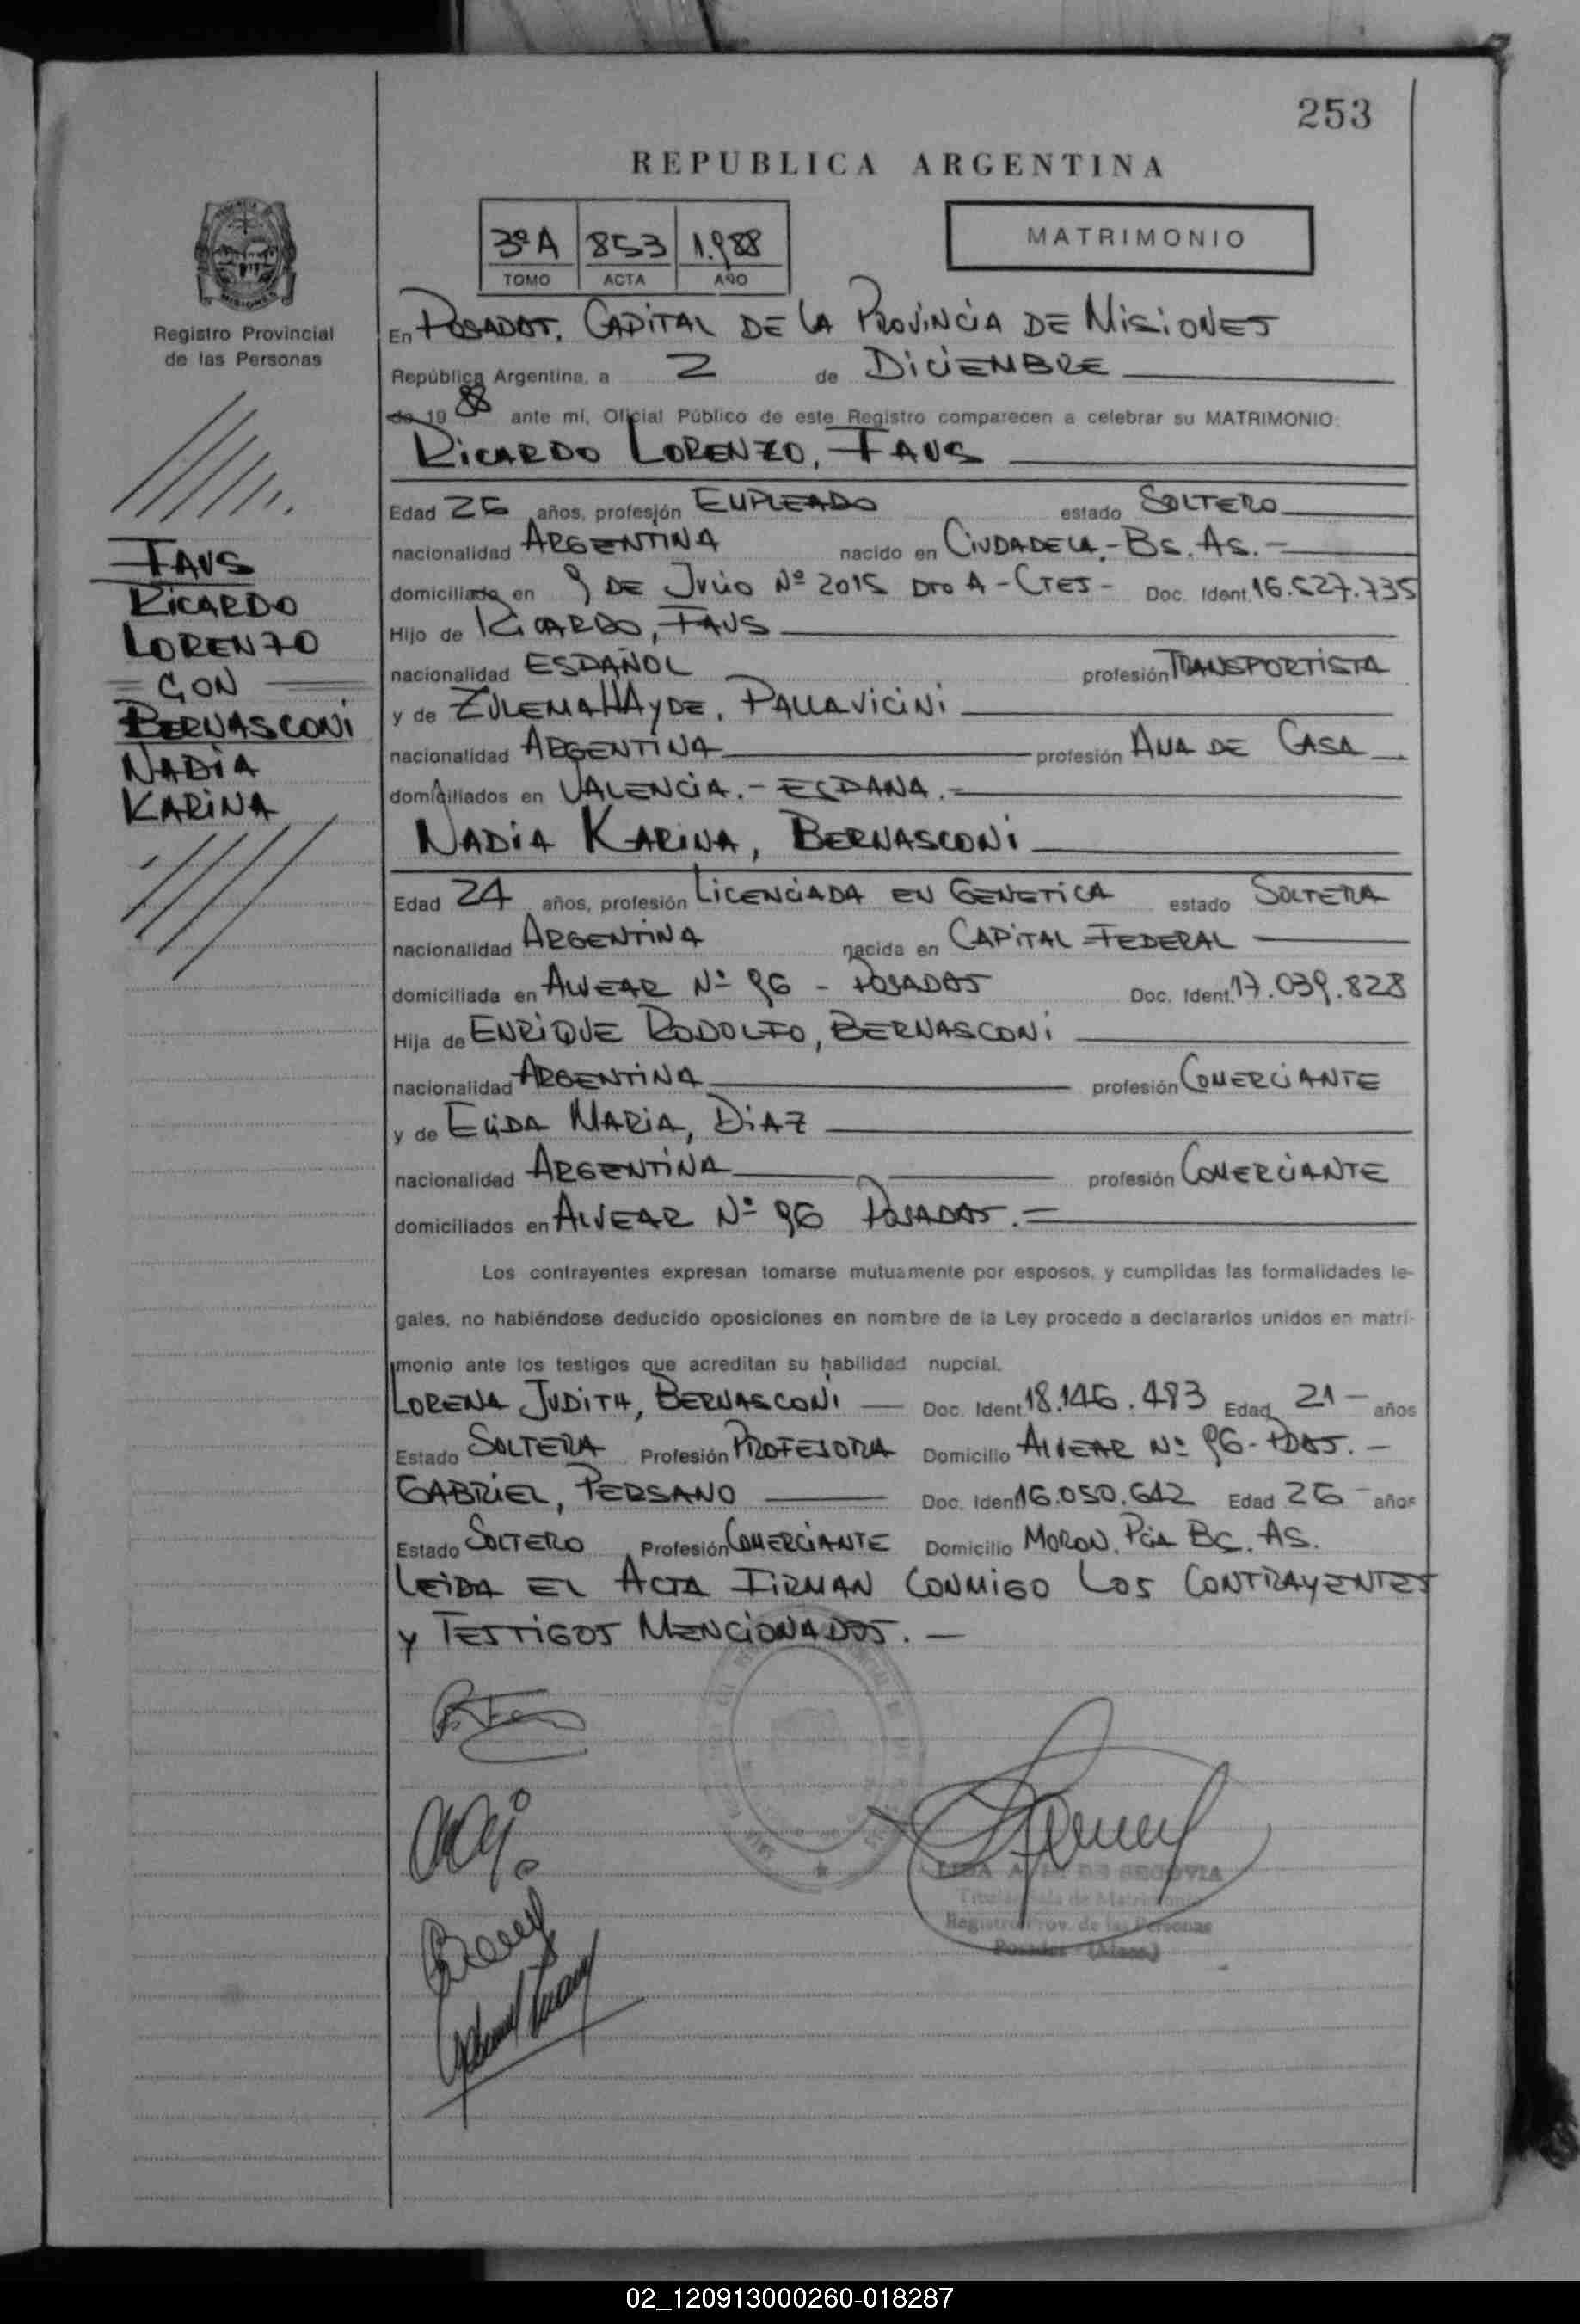 253
REPUBLICA ARGENTINA
3º A 853 1.988
TOMO ACTA AÑO
MATRIMONIO
PROVINCIA DE
MISIONES
Registro Provincial
de las Personas
FAUS
RICARDO
LORENZO
CON
BERNASCONI
NADIA
KARINA
En POSADAS, CAPITAL DE LA PROVINCIA DE MISIONES
República Argentina, a 2 de DICIEMBRE
de 1988 ante mí, Oficial Público de este Registro comparecen a celebrar su MATRIMONIO:
RICARDO LORENZO, FAUS
Edad 26 años, profesión EMPLEADO estado SOLTERO
nacionalidad ARGENTINA nacido en CIUDADELA.- Bs. As. -
domiciliado en 9 DE JULIO Nº 2015 DTO A - CTES - Doc. Ident. 16.527.735
Hijo de RICARDO, FAUS
nacionalidad ESPAÑOL profesión TRANSPORTISTA
y de ZULEMA HAYDE, PALLAVICINI
nacionalidad ARGENTINA profesión AMA DE CASA
domiciliados en VALENCIA.- ESPAÑA.=
NADIA KARINA, BERNASCONI
Edad 24 años, profesión LICENCIADA EN GENETICA estado SOLTERA
nacionalidad ARGENTINA nacida en CAPITAL FEDERAL
domiciliada en ALVEAR Nº 96 - POSADAS Doc. Ident. 17.039.828
Hija de ENRIQUE RODOLFO, BERNASCONI
nacionalidad ARGENTINA profesión COMERCIANTE
y de ELIDA MARIA, DIAZ
nacionalidad ARGENTINA profesión COMERCIANTE
domiciliados en ALVEAR Nº 96 POSADAS.=
Los contrayentes expresan tomarse mutuamente por esposos, y cumplidas las formalidades le-
gales, no habiéndose deducido oposiciones en nombre de la Ley procedo a declararlos unidos en matri-
monio ante los testigos que acreditan su habilidad nupcial.
LORENA JUDITH, BERNASCONI — Doc. Ident. 18.146.483 Edad 21 - años
Estado SOLTERA Profesión PROFESORA Domicilio ALVEAR Nº 96 - PDAS. -
GABRIEL, PERSANO — Doc. Ident. 16.050.612 Edad 26 - años
Estado SOLTERO Profesión COMERCIANTE Domicilio MORON. PCIA BS. AS.
LEIDA EL ACTA FIRMAN CONMIGO LOS CONTRAYENTES
Y TESTIGOS MENCIONADOS. —
DE SEGOVIA
Titular Sala de Matrimonio
Registro Prov. de las Personas
Posadas - (Mnes.)
02_120913000260-018287